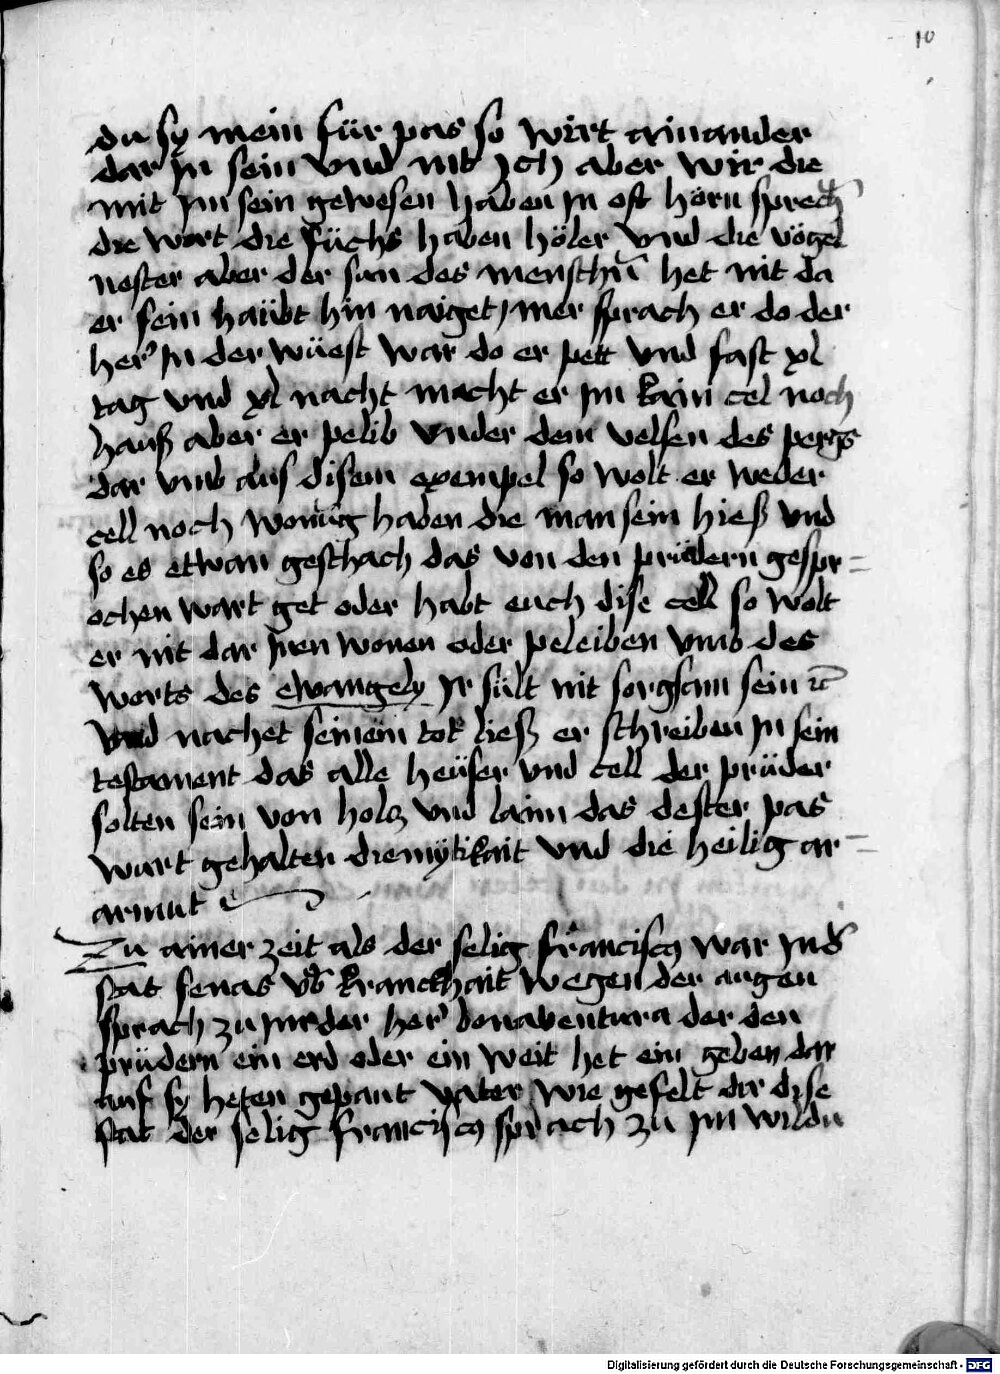 10
du sy mein für pas so wirt ainander
dar jn sein vnd nit jch aber wir die
mit jm sein gewesen haben jn oft hörn sprech̄
die wort die füchs haben höler vnd die vögel
nester aber der sun des menschn̄ het nit da
er sein haübt hin naiget / mer sprach er do der
her jn der wüest war do er pett vnd fast xl
tag vnd xl nacht macht er jm kain cel noch
hauß aber er pelib vnder dem velsen des pergs
dar vmb aus disem exempel so wolt er weder
cell noch wonūg haben die man sein hieß vnd
so es etwan geschach das von den prüdern gespr=
ochen wart get oder habt euch dise cell so wolt
er nit dar jnen wonen oder peleiben vmb des
worts des ewangely jr sült nit sorgsam sein ꝛc
vnd nachet seinem tod ließ er schreiben jn sein
testament das alle heüser vnd cell der prüder
solten sein von holcz vnd laim das dester pas
wurt gehalten diemütikait vnd die heilig ar=
armut
Zu ainer zeit als der selig franciscꝯ war jn d̄
stat senas vō kranckhait wegen der augen
sprach zu jm der her bonaventura der den
prüdern ein erd oder ein weit het ein geben dar
auf sy heten gepaut vater wie gefelt dir dise
stat der selig franciscꝯ sprach zu jm wildu
Digitalisierung gefördert durch die Deutsche Forschungsgemeinschaft - DFG